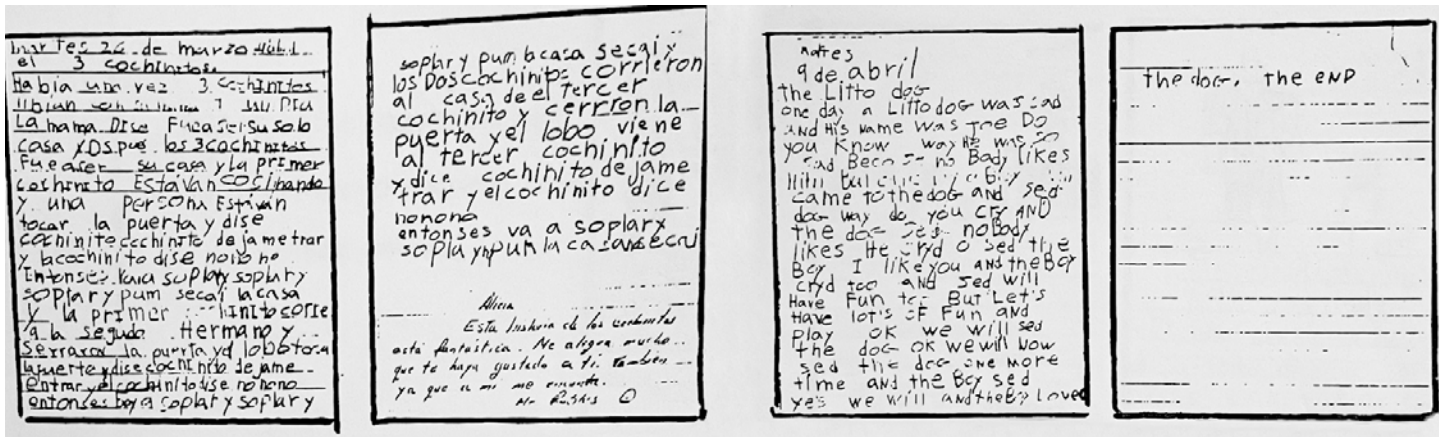 martes 26 de marzo
el 3 cochinitos
Habia una vez 3 cochinitos
La mama Dise Fueaser su solo
casa y Dspue los 3 cochinitos
Fueaser su casa y la primer
cochinito Estaivan cocinando
y una persona Estavan
tocar la puerta y dise
cochinito cochinito dejametrar
y lacochinito dise no no no
Entonses vava soplary soplary
soplar y pum secai la casa
y la primer corre
a la segudo Hermano y
serraron la puerta yel lobo toca
lapuerta ydise cochinito dejame
entrar yel cochinito dise no nono
entonses boy a soplar y soplar y
soplar y pum lacasa secai y
los Dos cochinitos corrieron
al casa de el tercer
cochinito y cerrron la
puerta y el lobo viene
al tercer cochinito
y dice cochinito dejame
trar y el cochinito dice
nonono
entonses va a soplar y
sopla y pum la casa secai
Alicia
Esta historia de los cochinitos
está fantástica. Me alegra mucho
que te haya gustado a ti. También
ya que a mi me encanta.
9 de abril
the Litto dog
one day a Litto dog was sad
AND His Name was Joe Do
you Know way He was so
sad Becose no Body likes
Him But one day a Boy
came to the dog AND sed
dog way do you cry AND
the dog sed nobody
likes He cryd o sed the
Boy I like you AND the Boy
cryd too and sed will
Have Fun too But Let's
Have lot's oF Fun and
play ok we will sed
the dog ok we will Now
sed the dog one more
time and the Boy sed
yes we will and the Boy Loved
the dog. the END